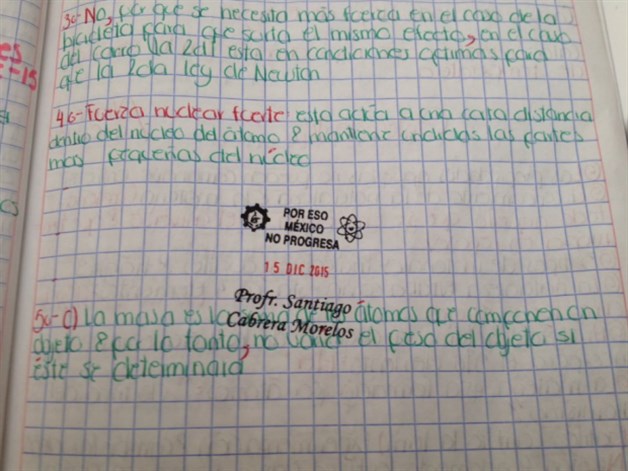 3.- No, por que se necesita más fuerza en el caso de la
para que surta el mismo efecto, en el caso
del carro la 2da está en condiciones optimas para
que la 2da ley de Newton
46-Fuerza nuclear fuerte esta actúa a una corta distancia
dentro del núcleo del átomo & mantiene unidas las partes
mas pequeñas del núcleo
POR ESO
MÉXICO
NO PROGRESA
15 DIC 2015
Profr. Santiago
Cabrera Morelos
50-C) La masa es la de átomos que componen un
objeto & por lo tanto, no el peso del objeto si
éste se